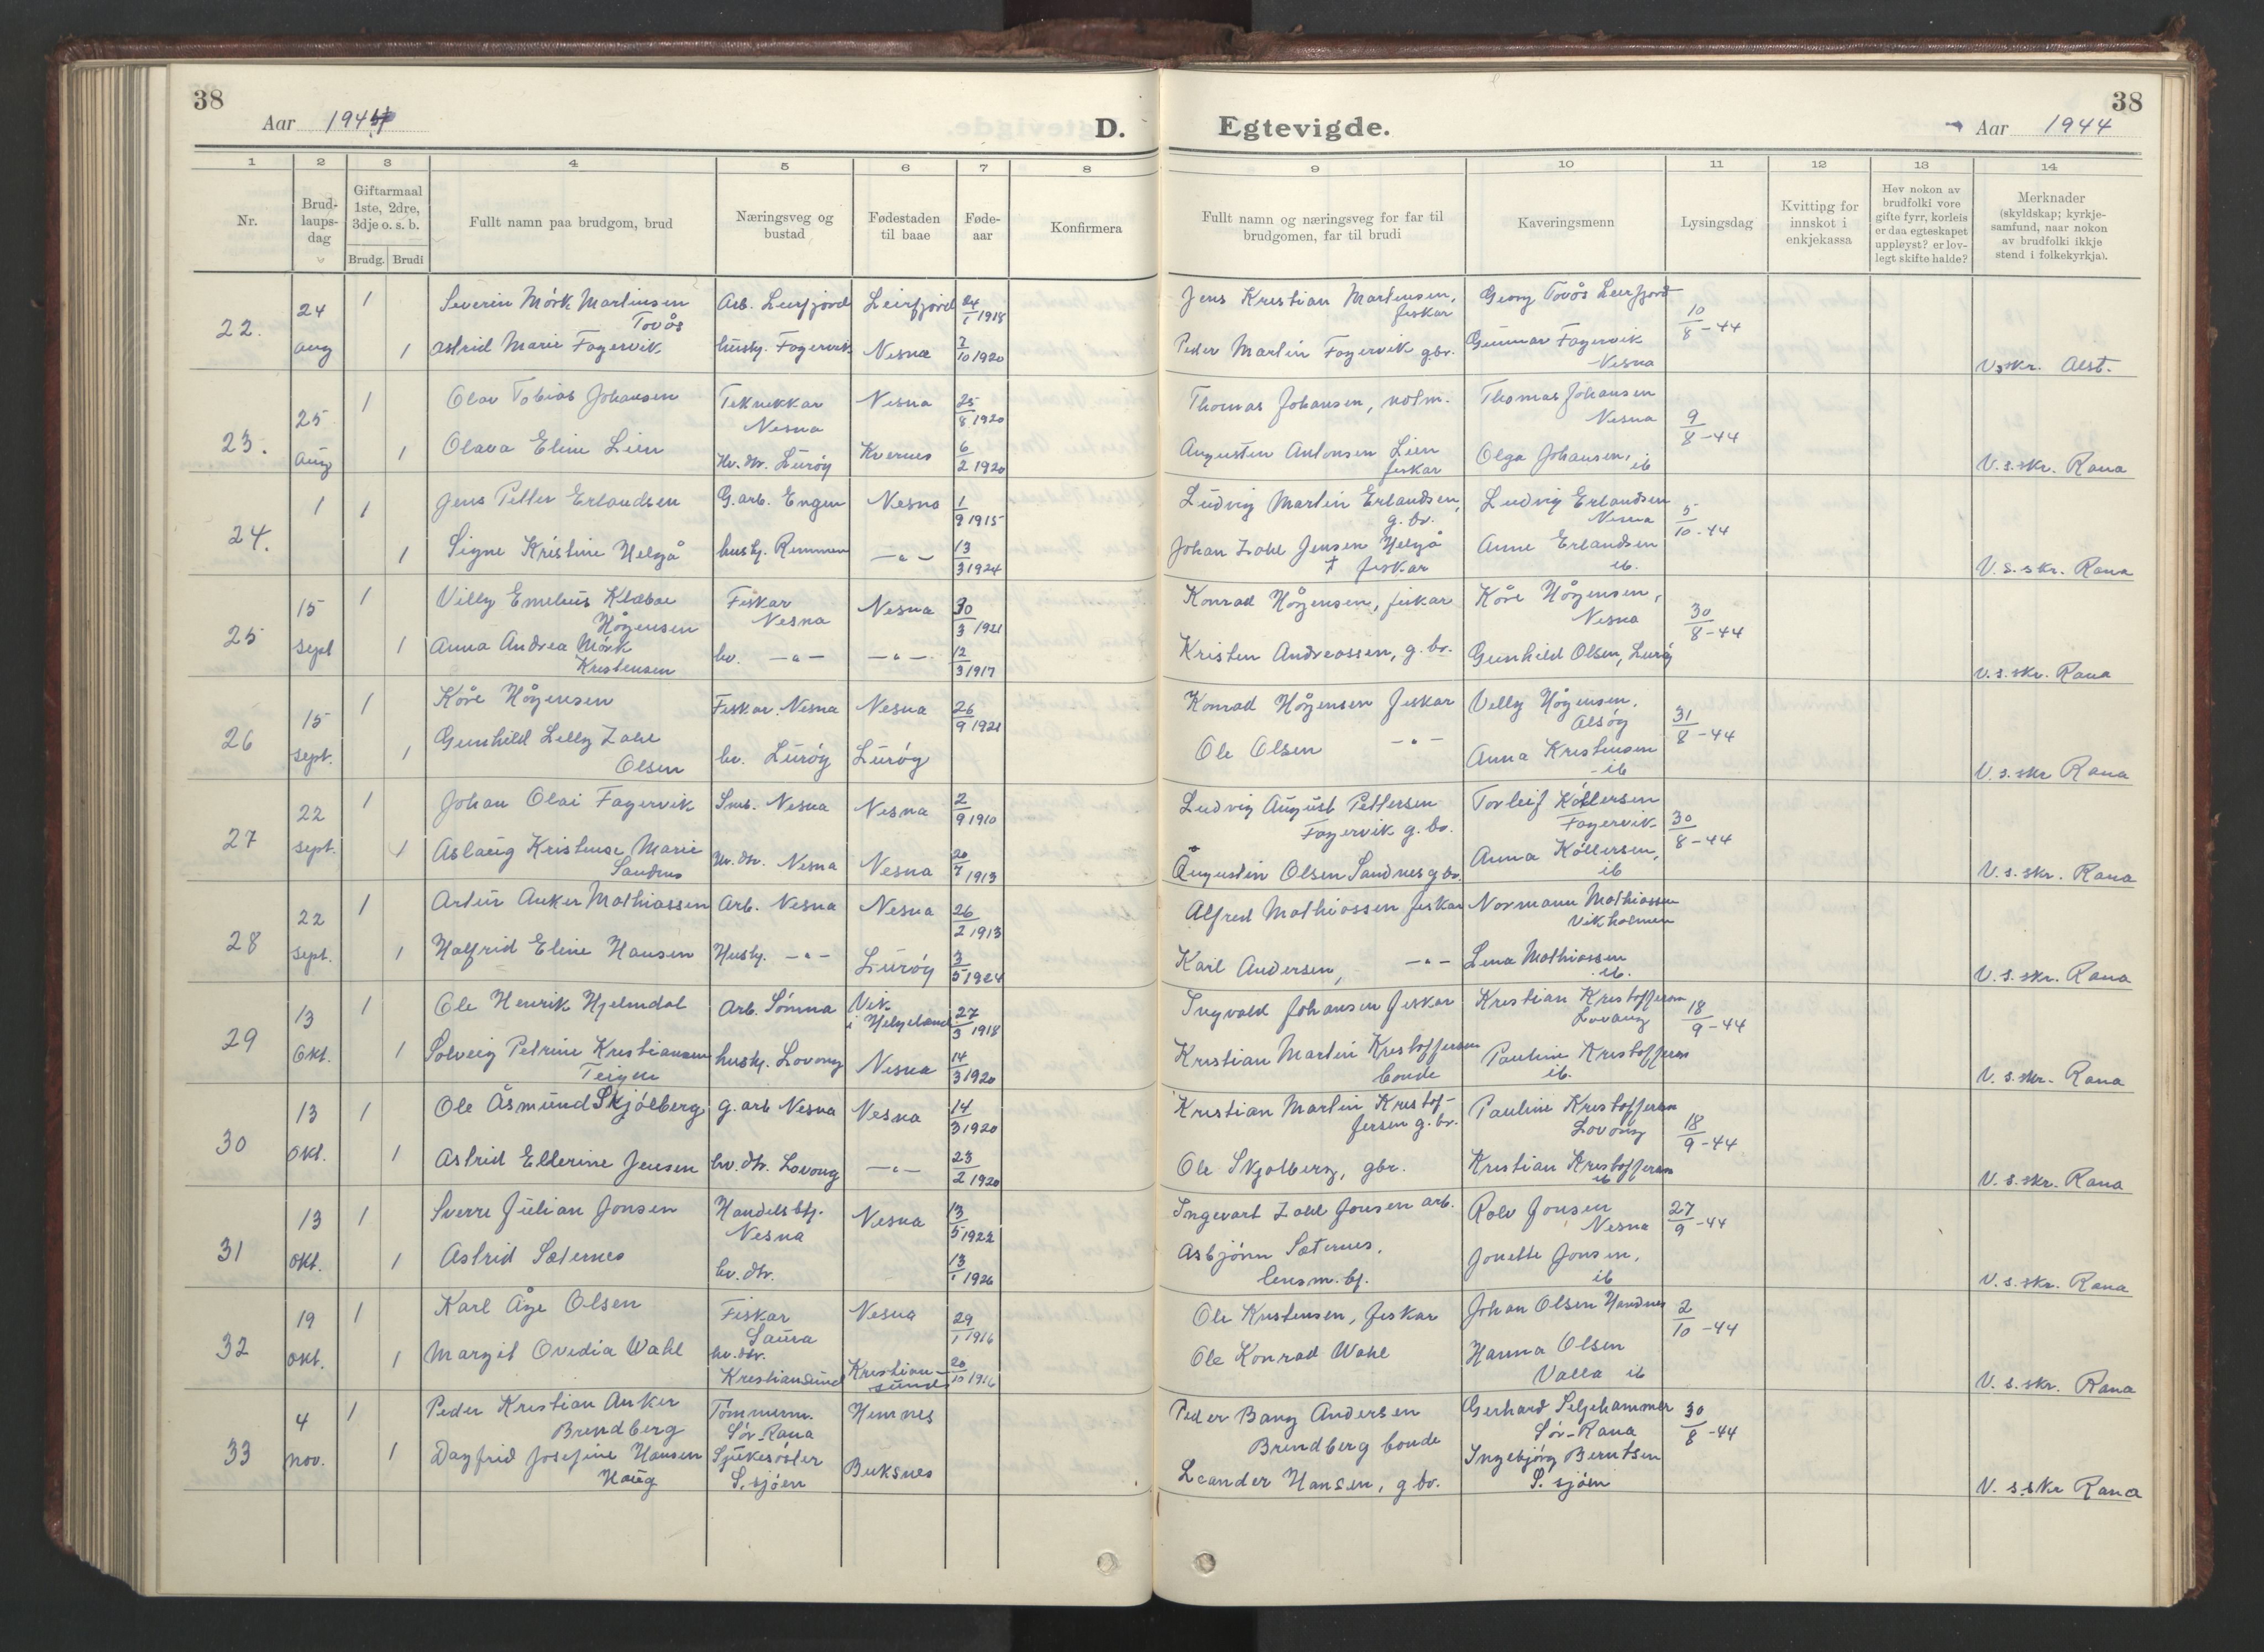 38
Aar 1944
D.
1 2 3 4 5 6 7 8
Nr.
Brud-
laups-
dag
Giftarmaal
1ste, 2dre,
3dje o. s. b.
Brudg. Brudi
Fullt namn paa brudgom, brud
Næringsveg og
bustad
Fødestaden
til baae
Føde-
aar
Konfirmera
22. 24 aug
1 Severin Mörk Martinsen Arb. Leirfjord Leirfjord 24/1 1918
Tovås
1 Astrid Marie Fagervik hushj. Fagervik Nesna 7/10 1920
23. 25 aug
1 Olav Tobias Johansen Teknikkar Nesna 25/8 1920
Nesna
1 Olava Eline Lien Hv. dtr. Luröy Kvernes 6/2 1920
24. 1
1 Jens Petter Erlandsen G. arb. Engen Nesna 1/9 1915
1 Signe Kristine Helgå hushj. Remmen —"— 13/3 1924
25 15 sept
1 Villy Emelius Klæboe Fiskar Nesna 30/3 1921
Högensen Nesna
1 Anna Andrea Mörk hv. —"— —"— 12/3 1917
Kristensen
26 15 sept.
1 Kåre Högensen Fiskar Nesna Nesna 26/9 1921
1 Gunhild Lelly Zahl hv. Luröy Luröy
Olsen
27 22 sept.
1 Johan Olai Fagervik Smb. Nesna Nesna 2/9 1910
1 Aslaug Kristense Marie Hv. dtr. Nesna Nesna 20/7 1913
Sandnes
28 22 sept.
1 Artur Anker Mathiassen Arb. Nesna Nesna 26/2 1913
1 Halfrid Eline Hansen Hushj. —"— Luröy 3/5 1924
29 13 okt.
1 Ole Henrik Hjelmdal Arb. Sömna Vik i Helgeland 27/3 1918
1 Solveig Petrine Kristiansen hushj. Lovong Nesna 14/3 1920
Teigen
30 13 okt.
1 Ole Åsmund Skjölberg g. arb Nesna Nesna 14/3 1920
1 Astrid Ellerine Jensen hv. dtr. Lovong —"— 23/2 1920
31 13 okt.
1 Sverre Julian Jonsen Handelsbtj. Nesna 13/5 1922
Nesna
1 Astrid Sæternes hv. dtr. 13/1 1926
32 19 okt.
1 Karl Åge Olsen Fiskar Nesna 29/1 1916
Saura
1 Margit Ovidia Wahl hv. dtr. Kristian- 20/10 1916
Kristiansund sund
33 4 nov.
1 Peder Kristian Anker Tömmerm. Hemnes
Brendberg Sör-Rana
1 Dagfrid Josefine Hansen Sjukesöster Buksnes
Haug S. sjöen
38
Egtevigde.
Aar 1944
9 10 11 12 13 14
Fullt namn og næringsveg for far til
brudgomen, far til brudi
Kaveringsmenn
Lysingsdag
Kvitting for
innskot i
enkjekassa
Hev nokon av
brudfolki vore
gifte fyrr, korleis
er daa egteskapet
uppløyst? er lov-
legt skifte halde?
Merknader
(skyldskap; kyrkje-
samfund, naar nokon
av brudfolki ikkje
stend i folkekyrkja).
Jens Kristian Martensen, Georg Tovås Leirfjord 10/8-44
fiskar
Peder Martin Fagervik gbr. Gunnar Fagervik
Nesna V. skr. Alst.
Thomas Johansen, notm. Thomas Johansen 9/8-44
Nesna
Augusten Antonsen Lien Olga Johansen, ib
fiskar V. s. skr. Rana
Ludvig Martin Erlandsen, Ludvig Erlandsen 5/10-44
g. br. Nesna
Johan Zahl Jensen Helgå Anne Erlandsen
† fiskar ib. V. s. skr. Rana
Konrad Högensen, fiskar Kåre Högensen, 30/8-44
Nesna
Kristen Andreassen, g. br. Gunhild Olsen, Luröy
V. s. skr. Rana
Konrad Högensen fiskar Velly Högensen, 31/8-44
Alsöy
Ole Olsen —"— Anna Kristensen
ib V. s. skr Rana
Ludvig August Pettersen Torleif Köllersen 30/8-44
Fagervik g. br. Fagervik
Augustin Olsen Sandnes gbr. Anna Köllersen,
ib V. s. skr. Rana
Alfred Mathiassen fiskar Normann Mathiassen
Vikholmen
Karl Andersen, —"— Lena Mathiassen
ib. V. s. skr. Rana
Ingvald Johansen fiskar Kristian Kristoffersen 18/9-44
Lovong
Kristian Martin Kristoffersen Pauline Kristoffersen
bonde ib. V. s. skr. Rana
Kristian Martin Kristof- Pauline Kristoffersen 18/9-44
fersen g. br. Lovong
Ole Skjolberg, gbr. Kristian Kristoffersen
ib V. s. skr. Rana
Ingevart Zahl Jonsen arb. Rolv Jonsen 27/9-44
Nesna
Asbjörn Sæternes, Jonette Jonsen,
lensm. btj. ib V. s. skr. Rana
Ole Kristensen, fiskar Johan Olsen Handnes 2/10-44
Ole Konrad Wahl Hanna Olsen
Valla ib V. s. skr. Rana
Peder Bang Andersen Gerhard Seljehammer 30/8-44
Brendberg bonde Sör-Rana
Leander Hansen, g br. Ingebjörg Berntsen
S. sjöen V. s. skr Rana